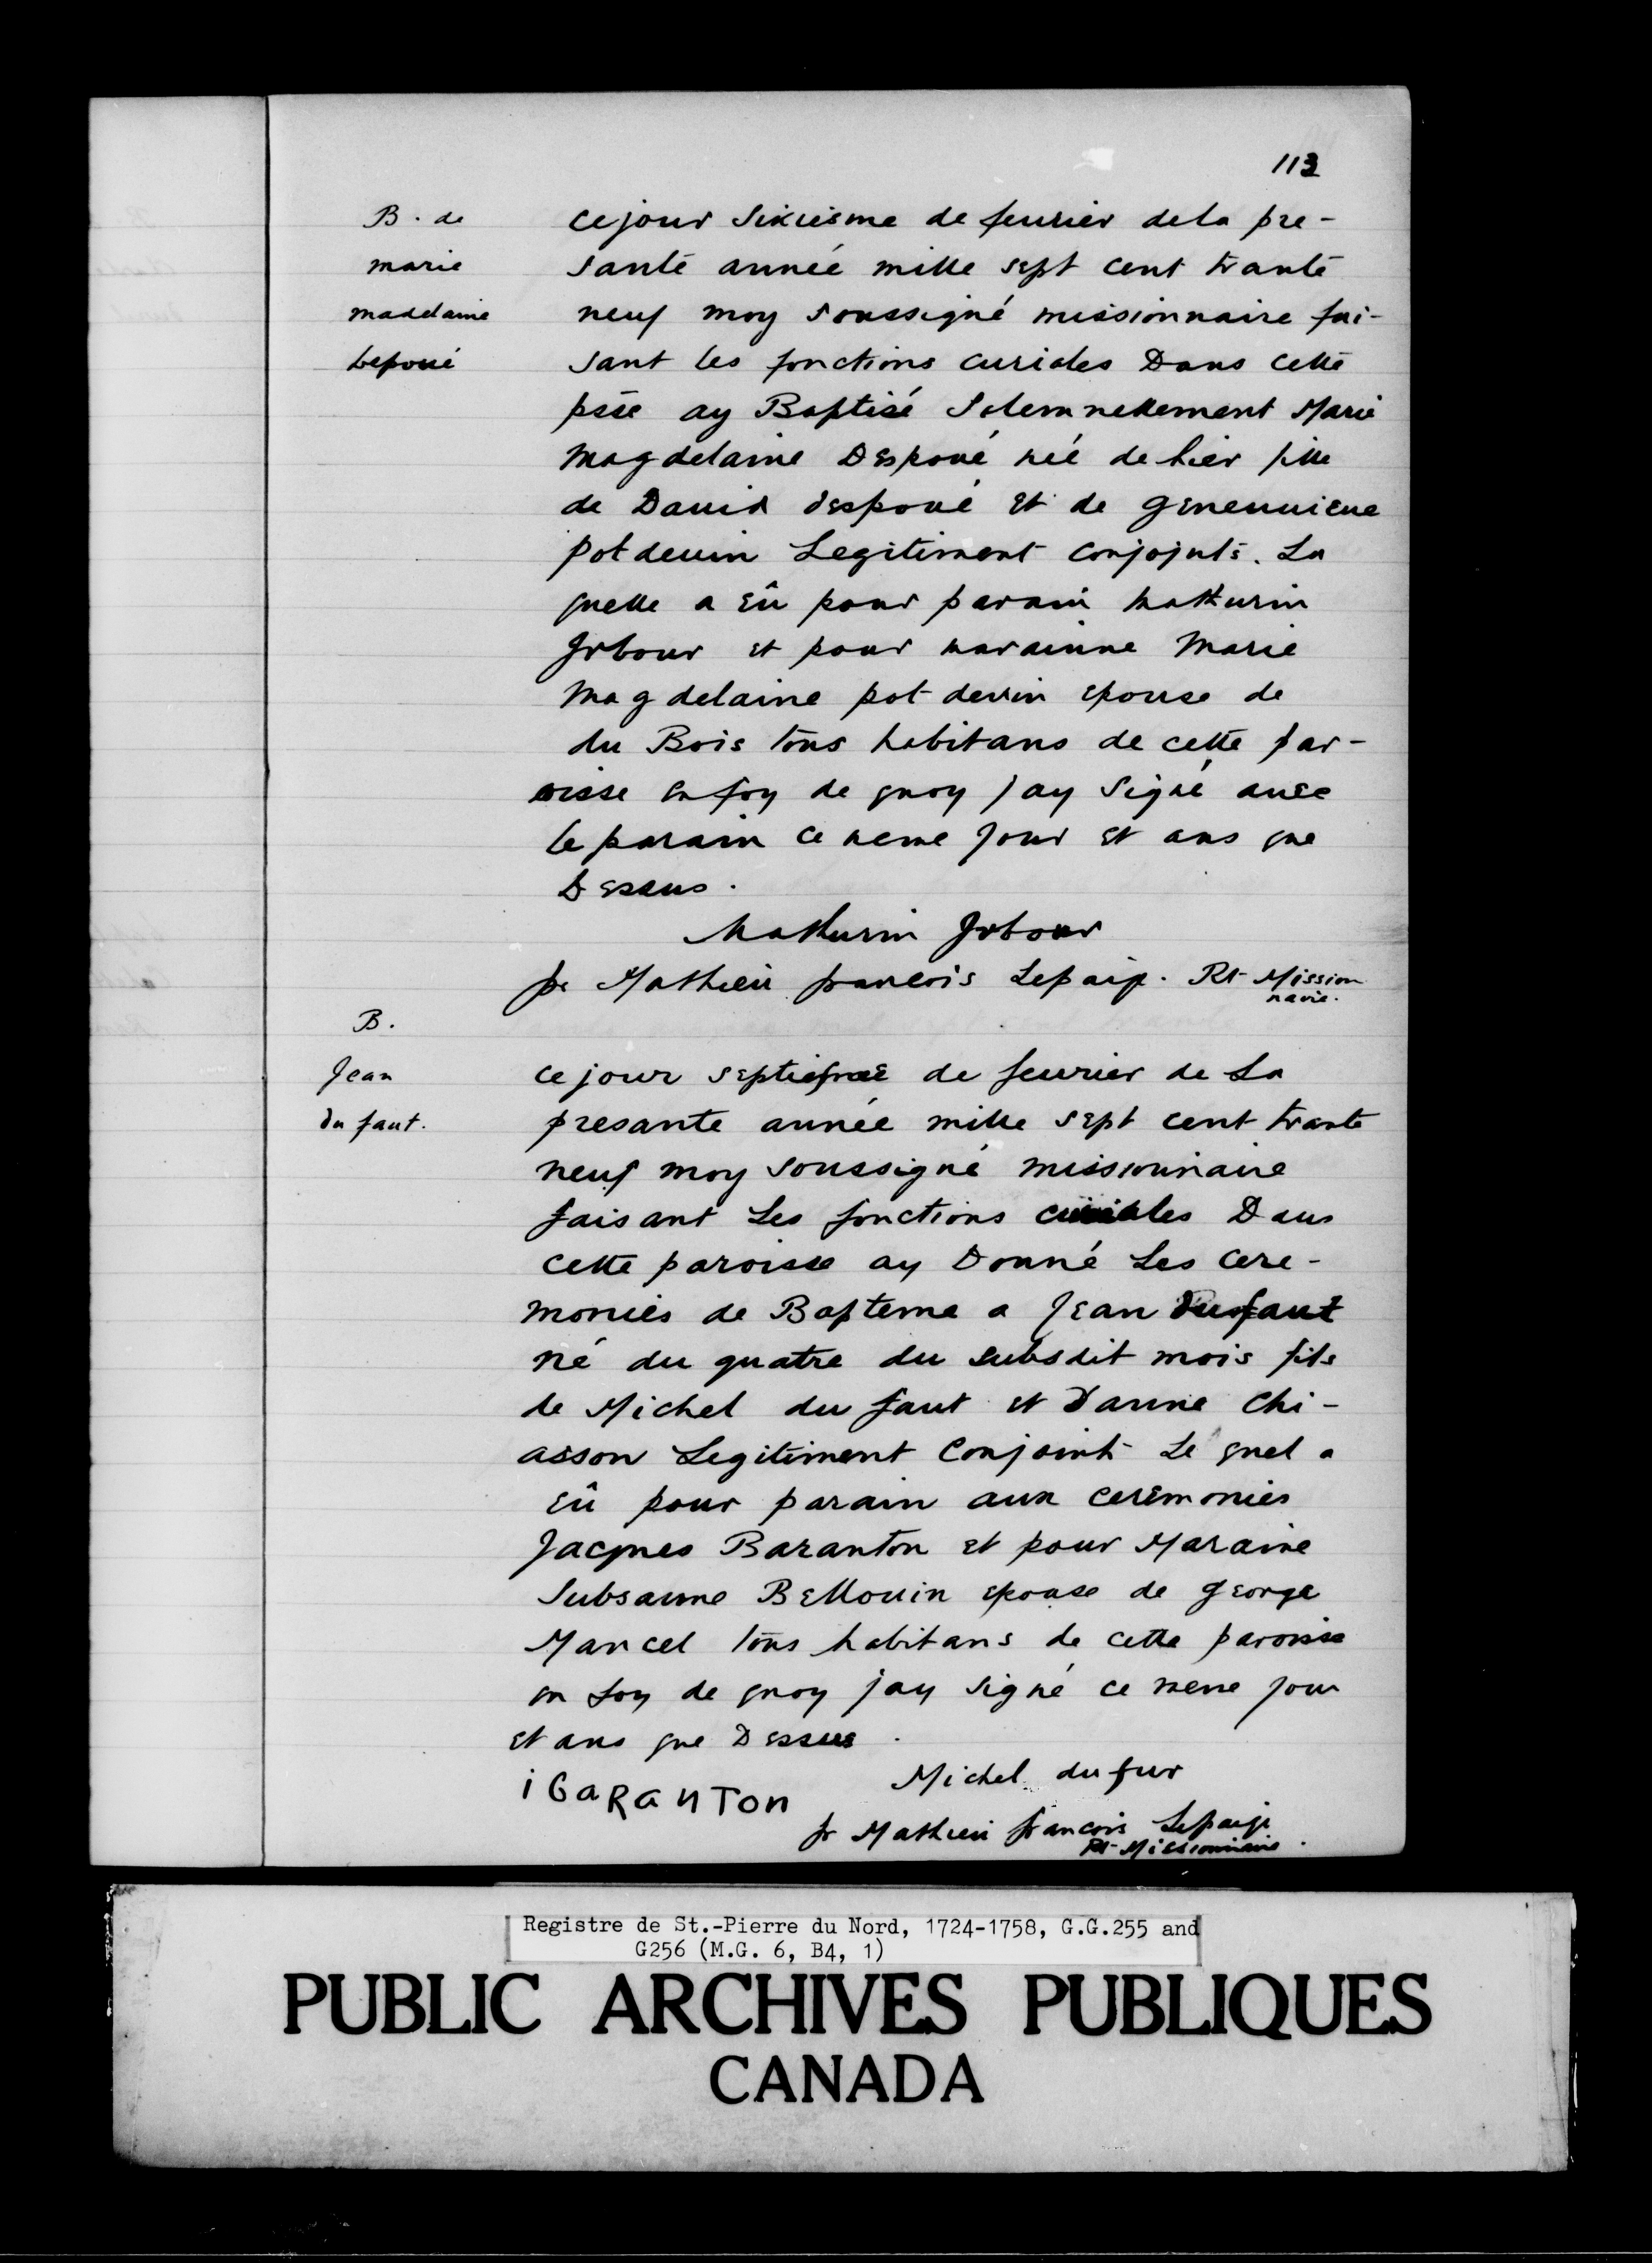 113
B. de
marie
madelaine
Depoué
ce jour sixiésme de feurier de la pre-
sante année mille sept cent trante
neuf moy soussigné missionnaire fai-
sant les fonctions curiales Dans cette
psse ay Baptisé Solemnellement Marie
Magdelaine Despoué née de hier fille
de Dauid despoué et de geneuuieue
potdeuin Legitiment conjojnts. La
quelle a Eû pour parain Mathurin
Jrbour et pour marainne Marie
Magdelaine pot devin epouse de
du Bois tous habitans de cette par-
oisse en foy de quoy jay signé auec
le parain ce meme jour et ans que
Dessus.
Mathurin Jrbour
fr Mathieu francois Lepaige. Rt Mission
naire.
B.
Jean
du faut.
ce jour septiesme de feurier de La
presante année mille sept cent trante
neuf moy soussigné missionnaire
faisant Les fonctions curiales Dans
cette paroisse ay Donné Les cere-
monies de Bapteme a Jean Dufaut
né du quatre du subsdit mois fils
de Michel du faut et Danne Chi-
asson Legitiment Conjoint Le quel a
Eû pour parain aux ceremonies
Jacques Baranton et pour Maraine
Subsanne BeMouin epouse de George
Marcel tous habitans de cette paroisse
en foy de quoy jay signé ce meme jour
et ans que Dessus.
i GaRaNTon
Michel dufur
fr Mathieu francois Lepaige
Rt Missionnaire.
Registre de St.-Pierre du Nord, 1724-1758, G.G.255 and
G256 (M.G. 6, B4, 1)
PUBLIC ARCHIVES PUBLIQUES
CANADA